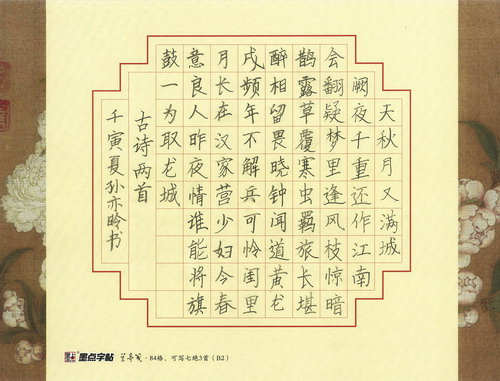 天秋月又满城
阙夜千重还作江南
会翻疑梦里逢风枝惊暗
鹊露草覆寒虫羁旅长堪
醉相留畏晓钟闻道黄龙
戍频年不解兵可怜闺里
月长在汉家营少妇今春
意良人昨夜情谁能将旗
鼓一为取龙城
古诗两首
壬寅夏孙亦昤书
墨点字帖 ·84格，可写七绝3首（B2）